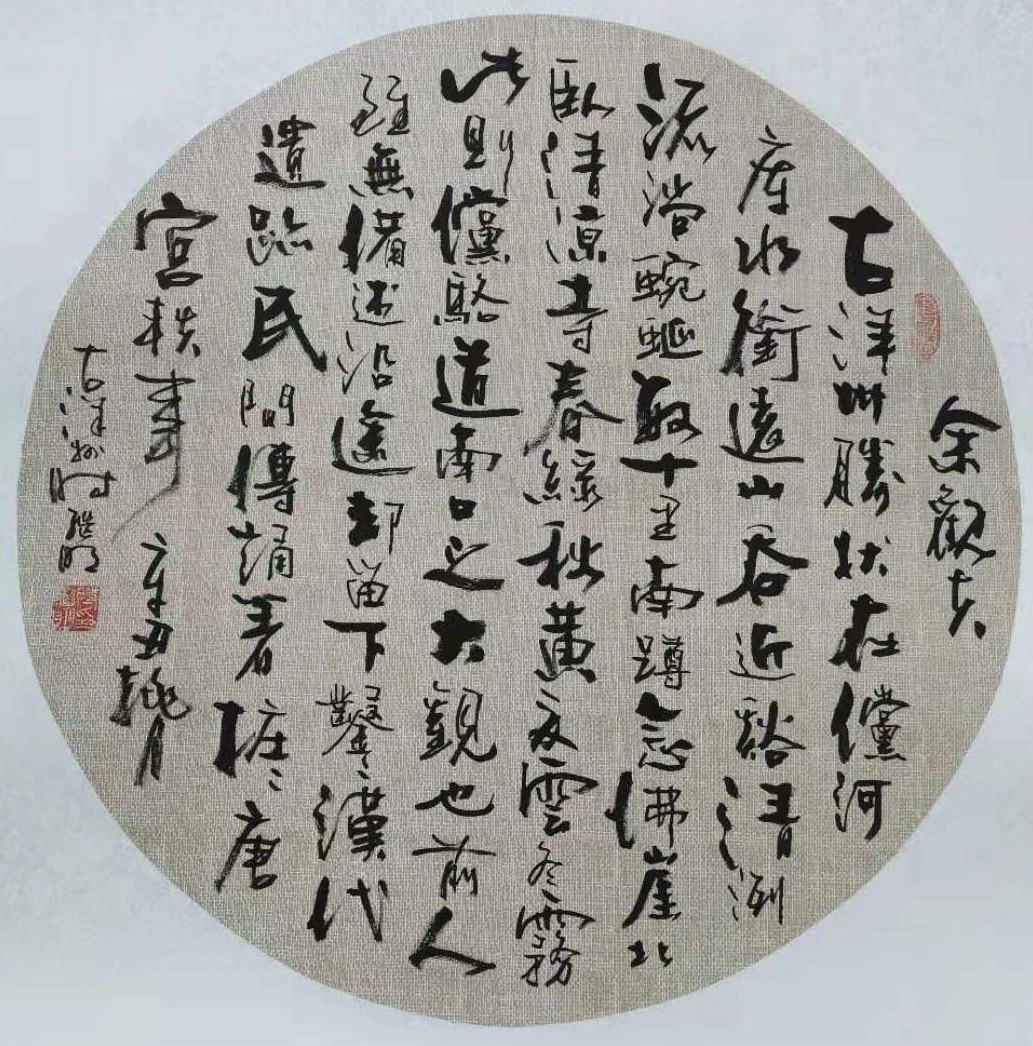 余觀夫
古洋州勝狀在儻河
庫水銜遠山吞近谿清洌
流淌蜿蜒數十里南蹲念佛崖北
臥清涼寺春綠秋黃夏雲冬霧
此則儻駱道南口之大觀也前人
雖無備述沿途却留下鑿鑿漢代
遺跡民間傳誦著樁樁唐
宮軼事 辛丑桃月
古洋州時